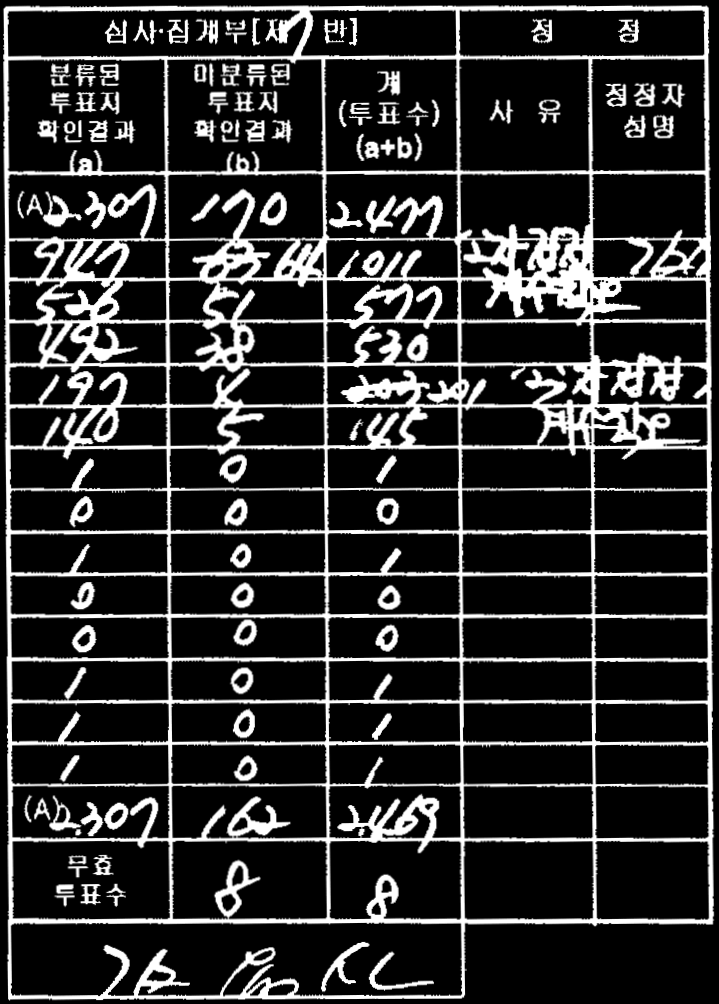 심사·집계부[제7반] 정 정
분류된 투표지 확인결과 (a) 미분류된 투표지 확인결과 (b) 계 (투표수) (a+b) 사 유 정정자 성명
(A)2.307 170 2.477
947 63 64 1011
526 51 577
492 38 530
197 4 203 201
140 5 145
1 0 1
0 0 0
1 0 1
0 0 0
0 0 0
1 0 1
1 0 1
1 0 1
(A)2.307 162 2.469
무효 투표수 8 8